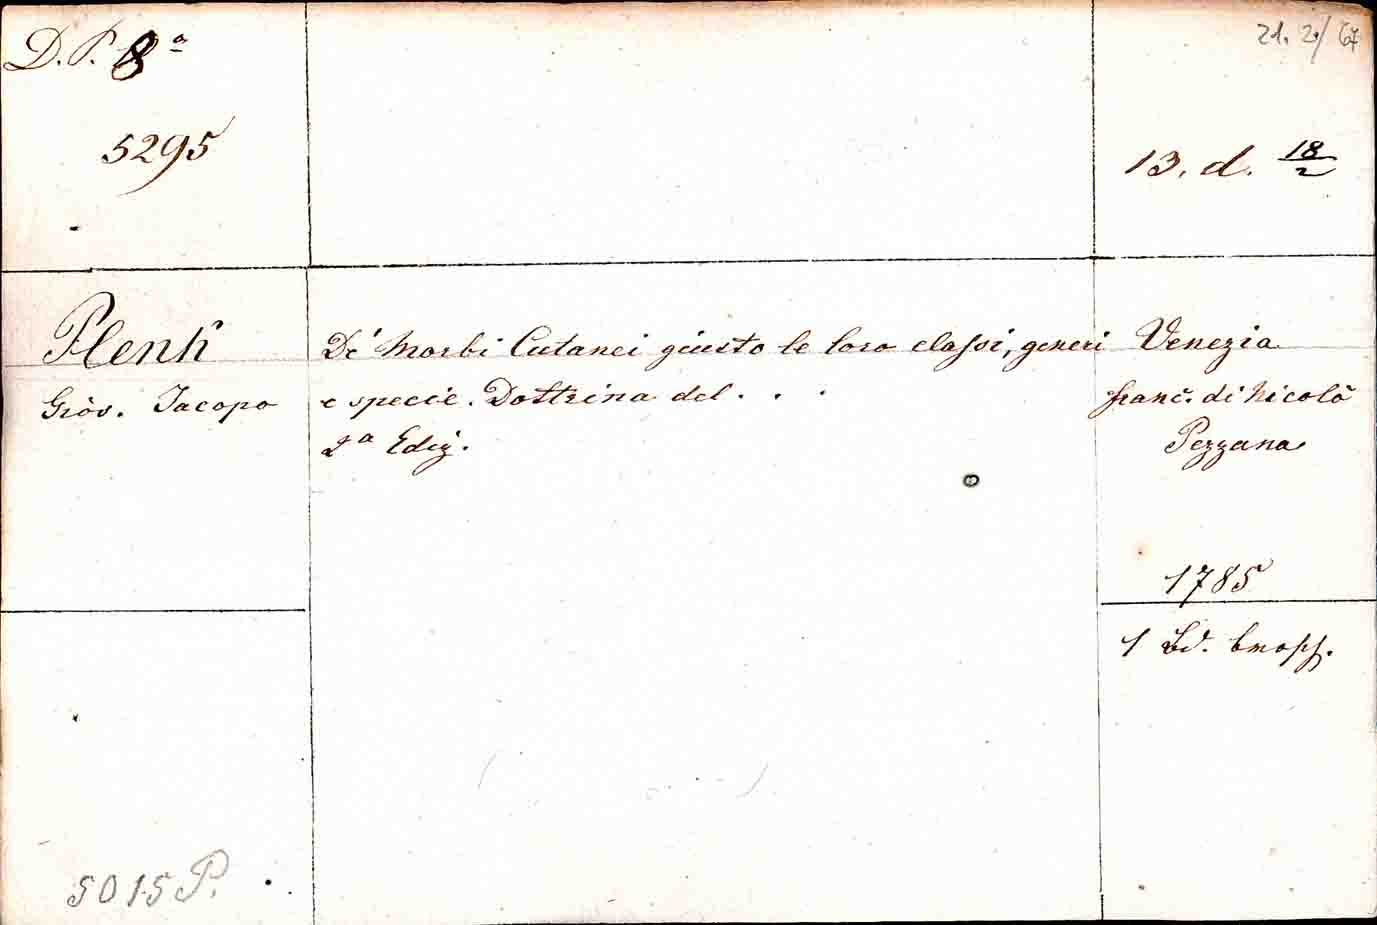 D. P. 8ª
5295
21. 2/67
13. d. 18/2
Plenk
Giov. Jacopo
De' Morbi Cutanei giusto le loro classi, generi
e specie. Dottrina del . . .
2ª Ediz.
Venezia
franc. di Nicolò
Pezzana
1785
1 Bd. brosch.
5015 P.